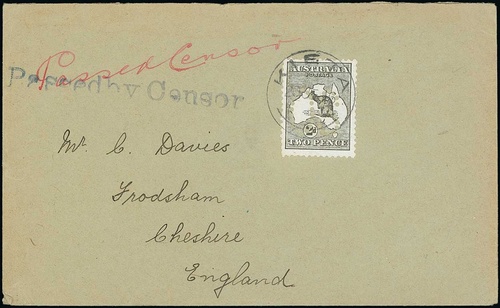 Passed Censor
Passed by Censor
KIETA
AUSTRALIA
POSTAGE
2d
TWO PENCE
Mr. C. Davies
Frodsham
Cheshire
England